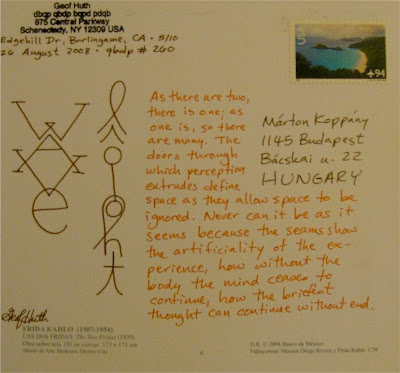 Geof Huth
dbqp qbdp bqpd pdqb
875 Central Parkway
Schenectady, NY 12309 USA
Edgehill Dr, Burlingame, CA • 5/10
26 August 2008 • qbdp # 260
94
As there are two,
there is one; as
one is, so there
are many. The
doors through
which perception
extrudes define
space as they allow space to be
ignored. Never can it be as it
seems because the seams show
the artificiality of the ex-
perience, how without the
body the mind ceases to
continue, how the briefest
thought can continue without end.
Márton Koppány
1145 Budapest
Bácskai u. 22
HUNGARY
Geof Huth
FRIDA KAHLO (1907-1954)
LAS DOS FRIDAS The Two Fridas (1939)
Óleo sobre tela. Oil on canvas 173 x 173 cm
Museo de Arte Moderno, Mexico City
D.R. © 2008 Banco de México
Fideicomiso Museos Diego Rivera y Frida Kahlo. C70